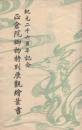 紀元二千六百年記念
正倉院御物特別展観絵葉書